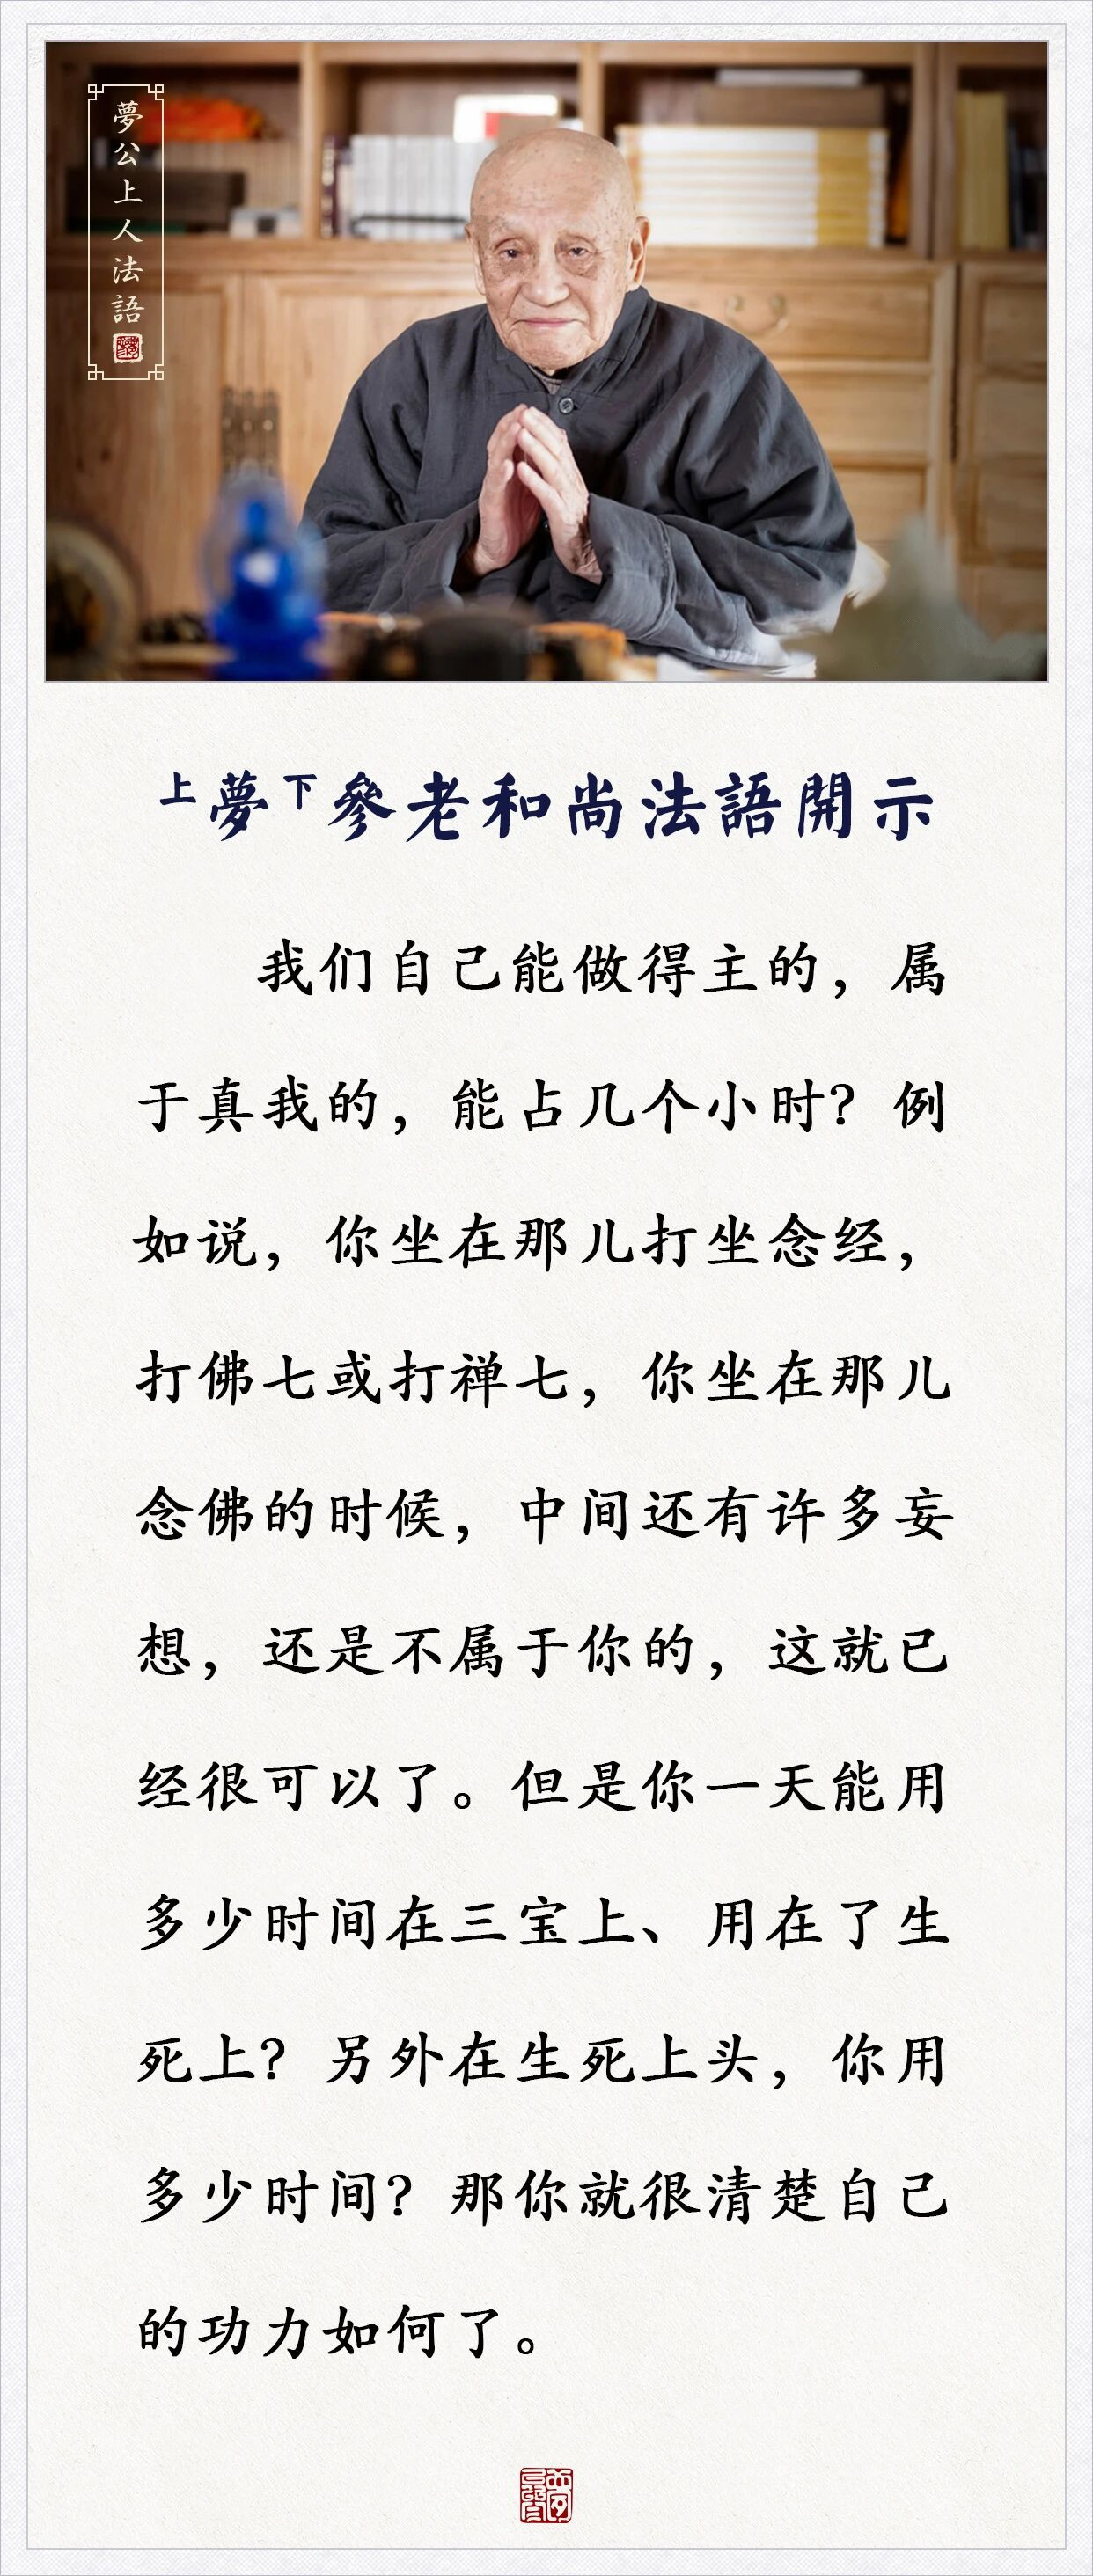 夢公上人法語
上夢下參老和尚法語開示
我们自己能做得主的，属
于真我的，能占几个小时？例
如说，你坐在那儿打坐念经，
打佛七或打禅七，你坐在那儿
念佛的时候，中间还有许多妄
想，还是不属于你的，这就已
经很可以了。但是你一天能用
多少时间在三宝上、用在了生
死上？另外在生死上头，你用
多少时间？那你就很清楚自己
的功力如何了。